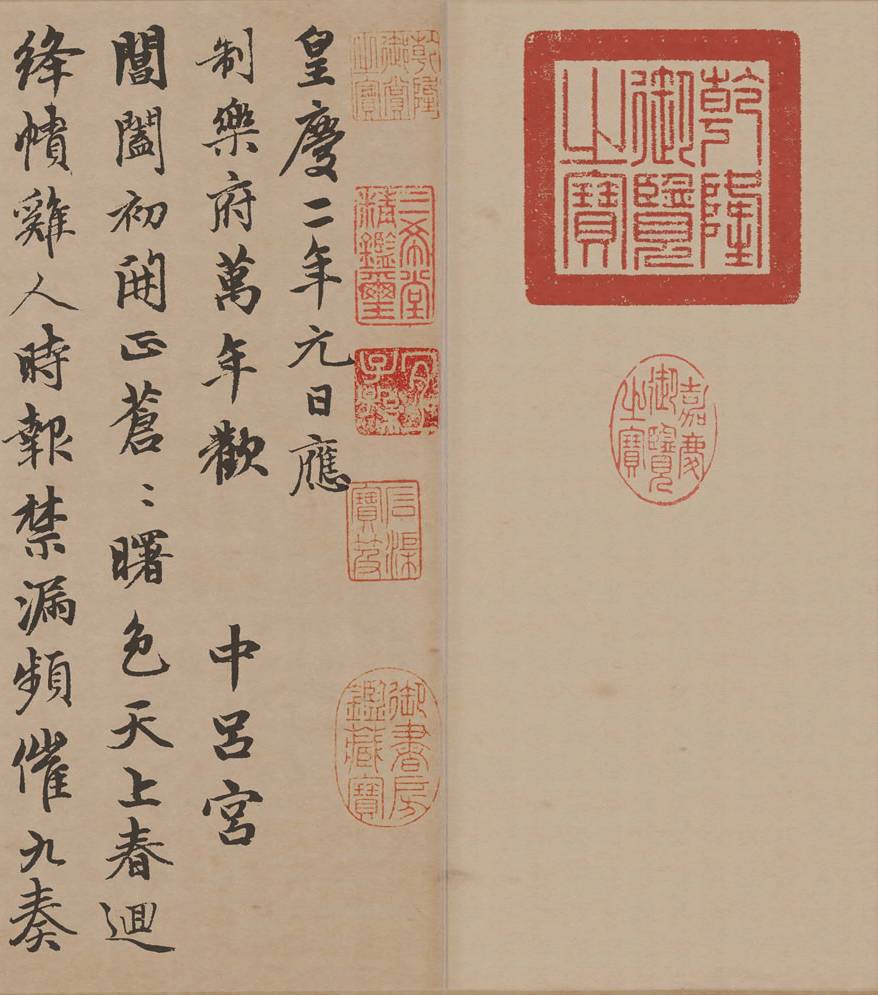 乾隆
御覽
之寶
嘉慶
御覽
之寶
乾隆
御賞
之寶
三希堂
精鑑璽
宜
子孫
石渠
寶笈
御書房
鑑藏寶
皇慶二年元日應
制樂府萬年歡 中呂宮
閶闔初開正蒼〻曙色天上春迴
絳幘雞人時報禁漏頻催九奏